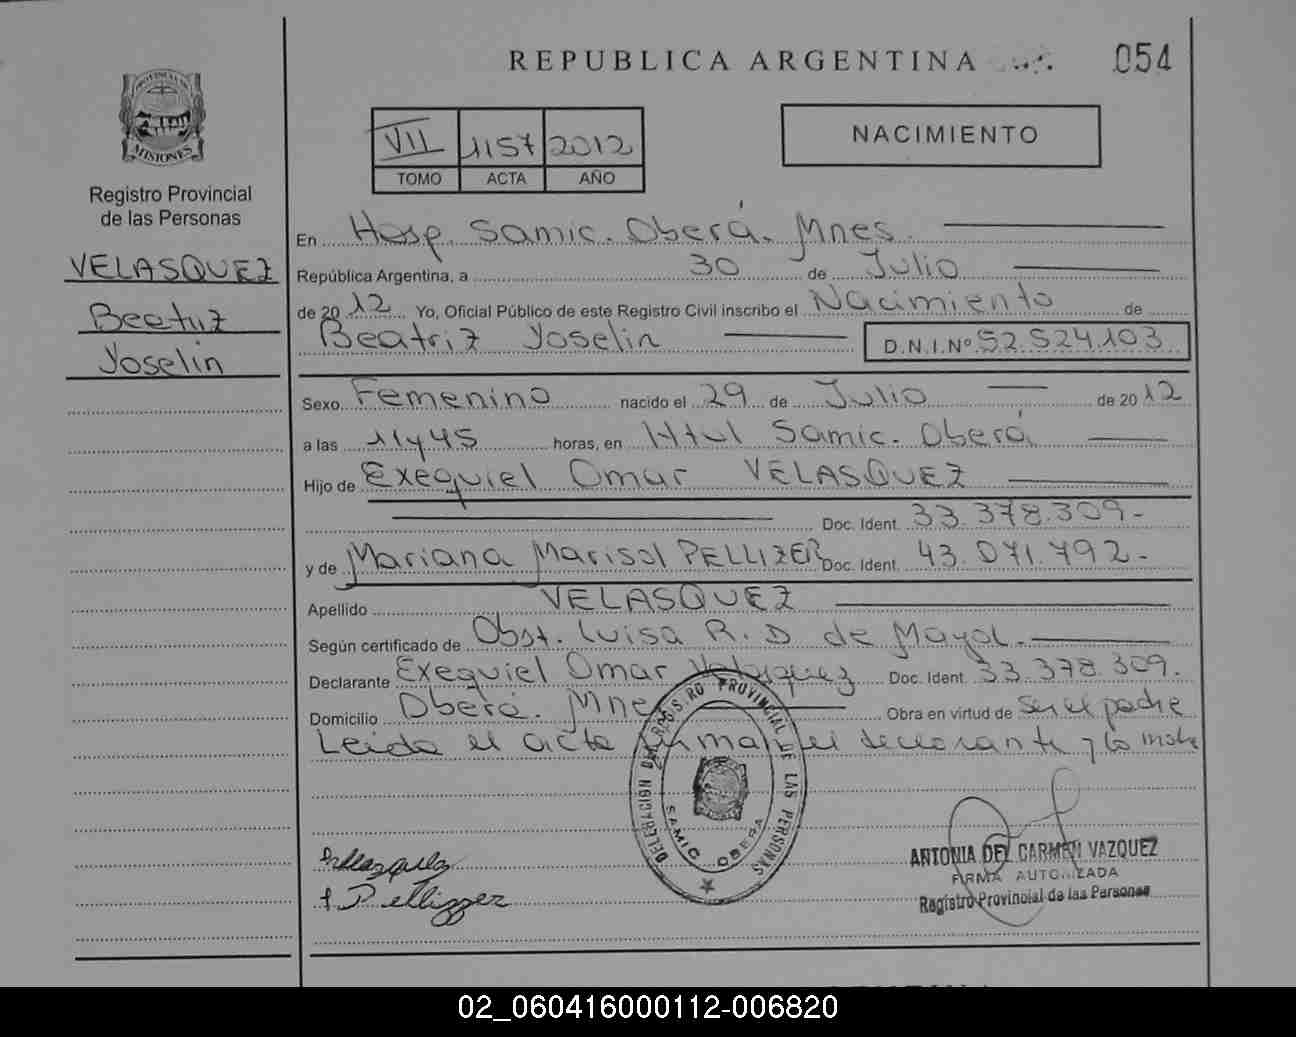 REPUBLICA ARGENTINA
054
PROVINCIA DE
MISIONES
Registro Provincial
de las Personas
VELASQUEZ
Beatriz
Yoselin
VII 1157 2012
TOMO ACTA AÑO
NACIMIENTO
En Hosp. Samic. Oberá. Mnes.
República Argentina, a 30 de Julio
de 2012 Yo, Oficial Público de este Registro Civil inscribo el Nacimiento de
Beatriz Yoselin D.N.I.Nº 52.524.103
Sexo Femenino nacido el 29 de Julio de 2012
a las 11 y 45 horas, en Htul Samic. Oberá
Hijo de Exequiel Omar VELASQUEZ
Doc. Ident. 33.378.309-
y de Mariana Marisol PELLIZER Doc. Ident. 43.071.792-
Apellido VELASQUEZ
Según certificado de Obst. Luisa R. D de Mayol.
Declarante Exequiel Omar Velasquez Doc. Ident. 33.378.309.
Domicilio Oberá. Mnes Obra en virtud de ser el padre
Leida el acta firman el declarante y la madre
DELEGACION DEL REGISTRO PROVINCIAL DE LAS PERSONAS
SAMIC OBERA
Velazquez
Pellizzer
ANTONIA DEL CARMEN VAZQUEZ
FIRMA AUTORIZADA
Registro Provincial de las Personas
02_060416000112-006820